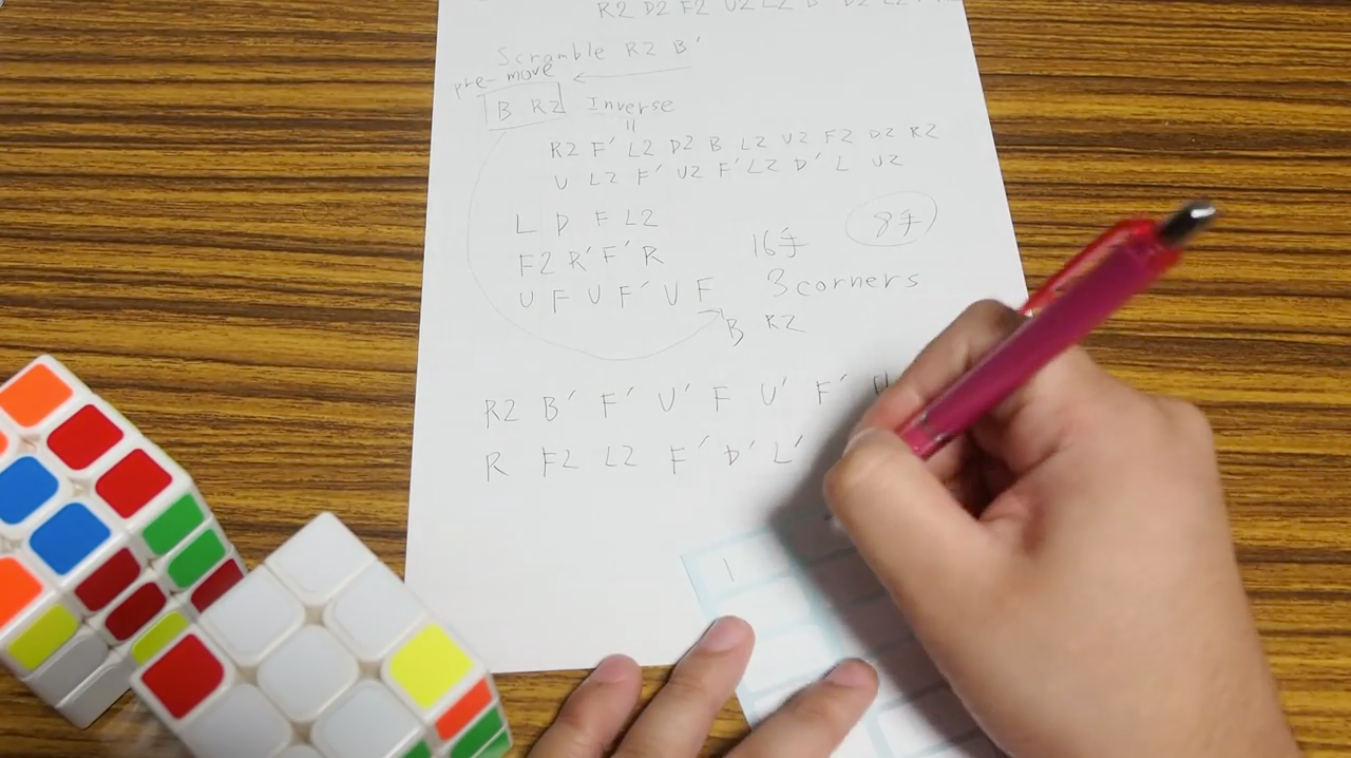 R2 D2 F2 U2 L2 B' D2 L2
Scramble R2 B'
pre-move
B R2 Inverse
R2 F' L2 D2 B L2 U2 F2 D2 R2
U L2 F' U2 F' L2 D' L U2
L D F L2
F2 R' F' R 16手 8手
U F U F' U F 3corners
B R2
R2 B' F' U' F U' F'
R F2 L2 F' D' L'
1